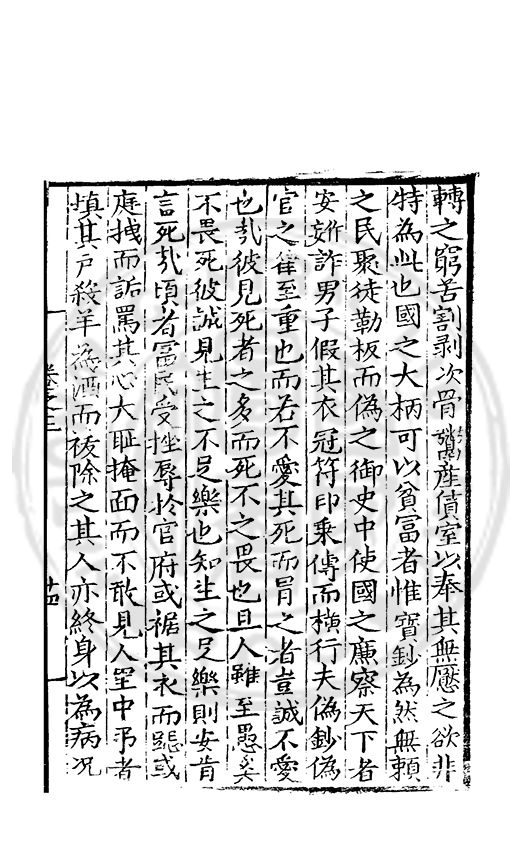 轉之窮苦割剥次骨鬻產債室以奉其無厭之欲非
特為此也國之大柄可以貧富者惟寶鈔為然無頼
之民聚徒勒板而偽之御史中使國之廉察天下者
安姧詐男子假其衣冠符印乘傳而橫行夫偽鈔偽
官之律至重也而若不愛其死而冐之者豈誠不愛
也㢤彼見死者之多而死不之畏也且人雖至愚奚
不畏死彼誠見生之不足樂也知生之足樂則安肯
言死㢤頃者富民受挫辱扵官府或裾其衣而跽或
庭拽而詬罵其心大耻掩面而不敢見人里中弔者
填其戸殺羊為酒而祓除之其人亦終身以為病况
卷之三
十四